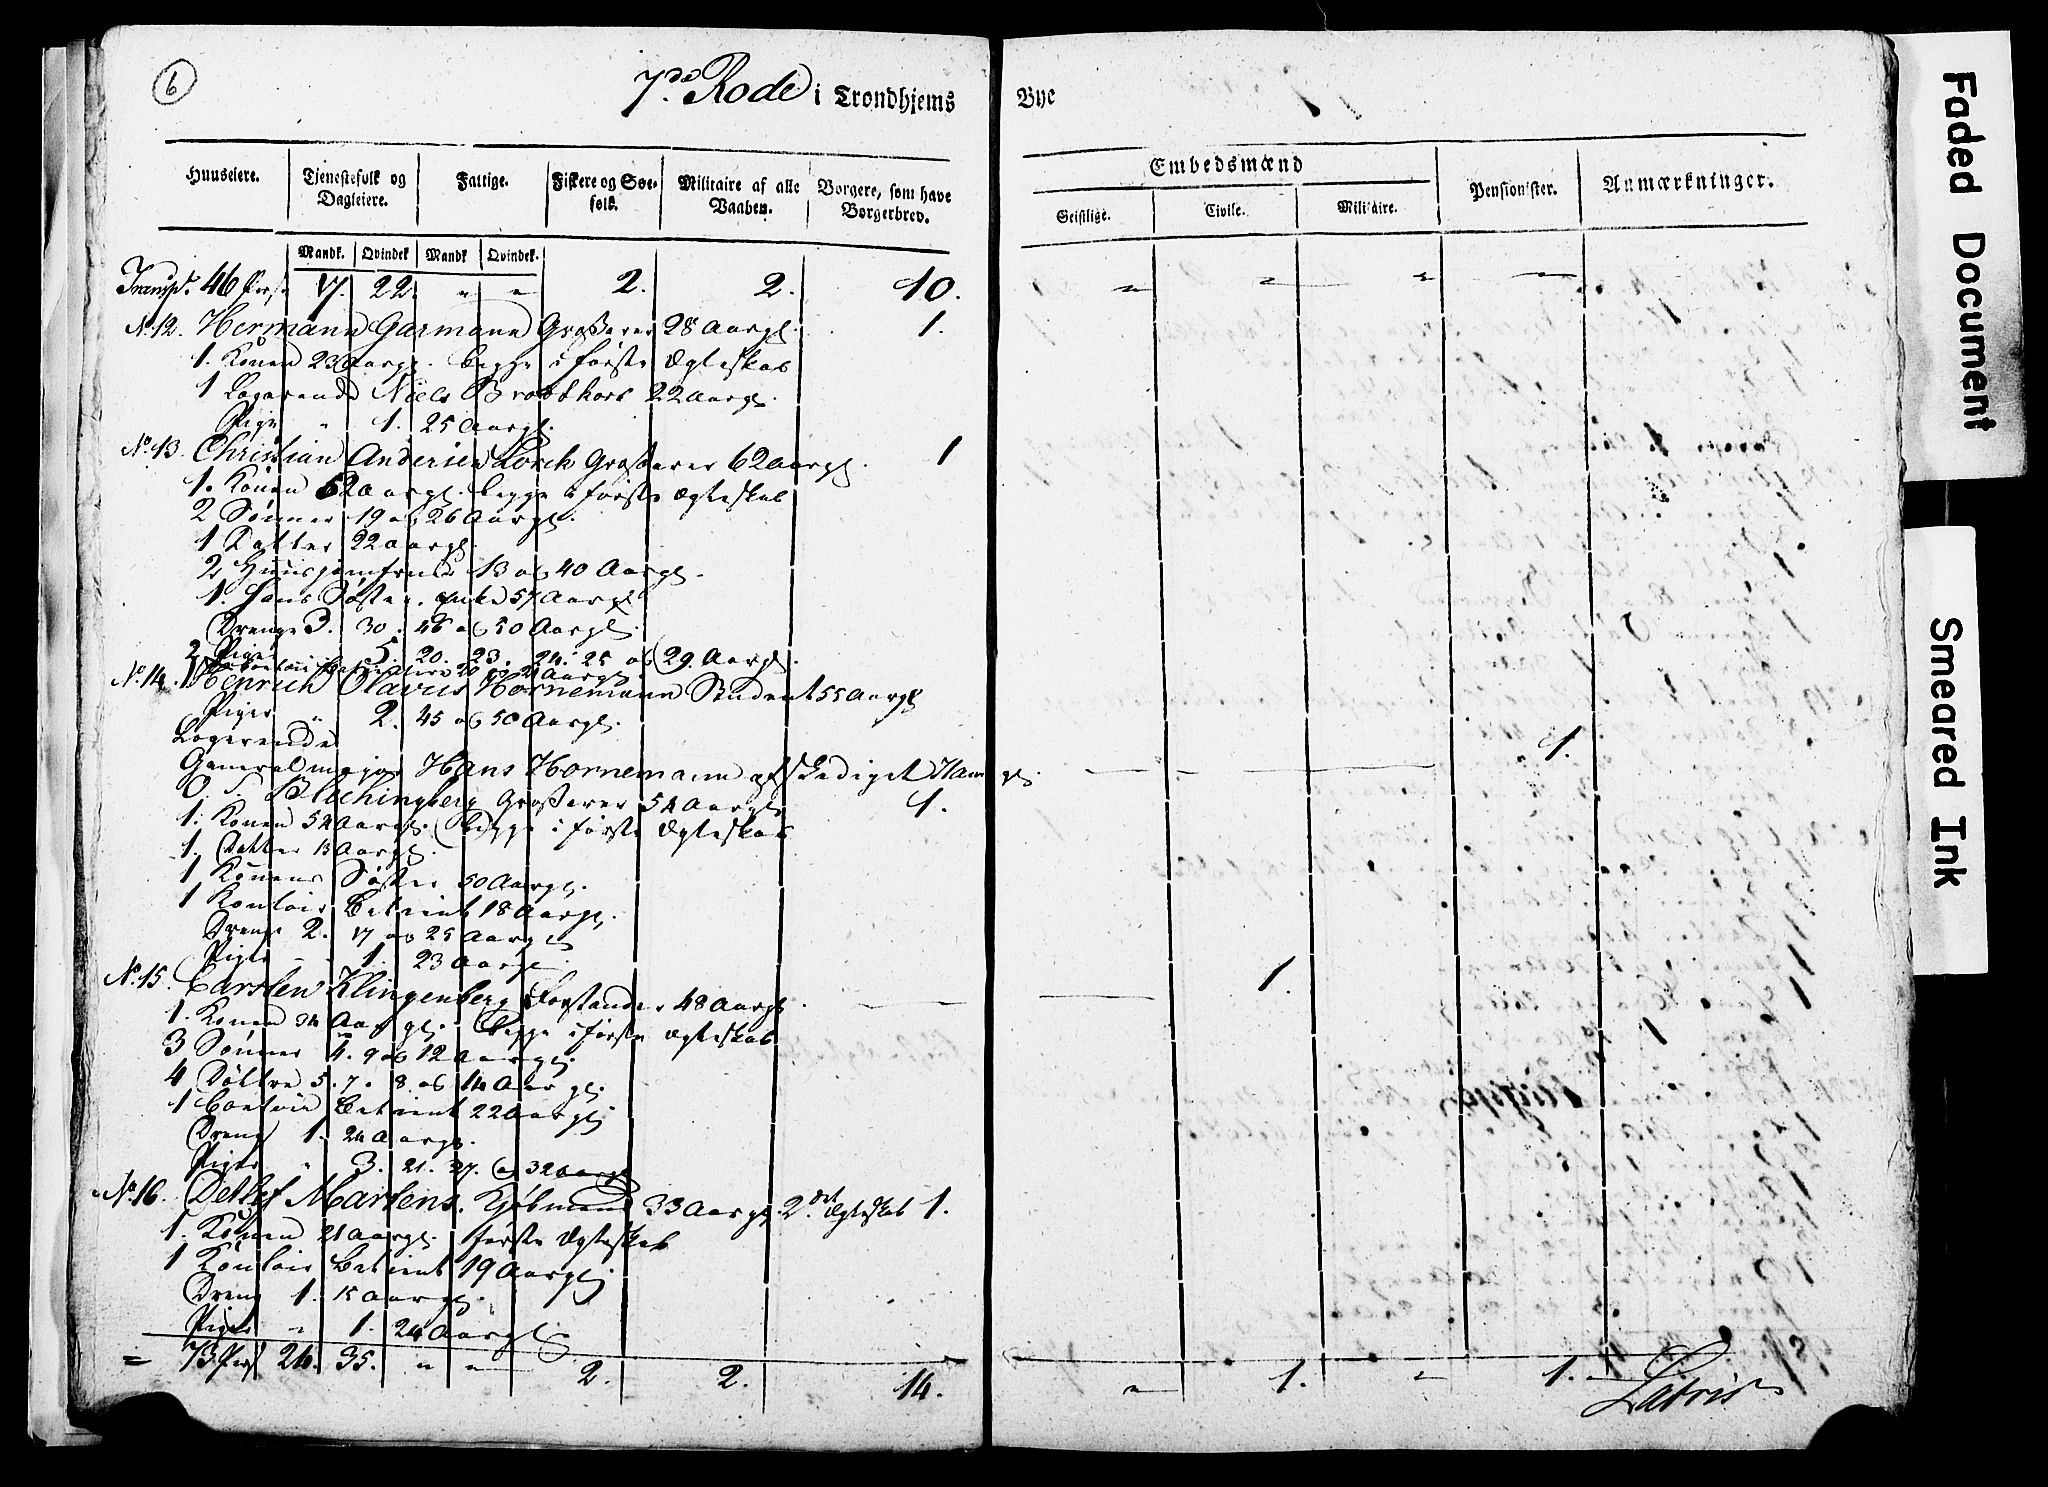 6
7de Rode i Trondhjems Bye
Huuseiere. Tjenestefolk og Dagleiere. Fattige. Fiskere og Søefolk. Militaire af alle Vaaben. Borgere, som have Borgerbrev. Embedsmænd Pensionister. Anmærkninger.
Geistlige. Civile. Militaire.
Mandk. Qvindek Mandk Qvindek.
Transp. 46 Pers 17. 22. " " 2. 2. 10. " " " "
No. 12. Hermann Garmann Grosserer 28 Aargl. 1.
1. Konen 23 Aargl. begge i første Ægteskab
1 Logerende Niels Brodtkorb 22 Aargl.
Pige " 1. 25 Aargl.
No. 13. Christian Andersen Lorck Grosserer 62 Aargl. 1
1. Konen 52 Aargl. begge i første Ægteskab
2 Sønner 19 og 26 Aargl.
1 Datter 22 Aargl.
2 Huusjomfruer 13 og 40 Aargl.
1. Hans Søster, enke 57 Aargl
Drenge 3. 30. 46 og 50 Aargl.
Piger 5. 20. 23. 24. 25 og 29. Aargl.
2 20 og 21 Aargl.
No. 14. 1 Henrich Olavus Hornemann Student 55 Aargl
Piger " 2. 45 og 50 Aargl.
Logerende
Generalmajor Hans Hornemann afskediget gl. 1.
O. S. Blechingberg Grosserer 54 Aargl 1.
1. Konen 52 Aargl. Begge i første Ægteskab
1. Datter 13 Aargl.
1 Konens Søster 50 Aargl.
1 Kontoir Betient 18 Aargl.
Drenge 2. 17 og 25 Aargl
Piger " 1. 23 Aargl.
No. 15. Carsten Klingenberg Forstander 48 Aargl. 1.
1. Konen 34 Aargl. Begge i første Ægteskab
3 Sønner 4. 9 og 12 Aargl.
4 Døttre 5. 7. 8. og 14 Aargl.
1 Contoir Betient 22 Aargl
Dreng 1. 24 Aargl.
Piger " 3. 21. 37. og 32 Aargl
No. 16. Detlef Martens. Kjøbmand 33 Aargl. 2det Ægteskab 1.
1. Konen 21 Aargl. første Ægteskab
1 Kontoir Betient 19 Aargl
Dreng 1. 15 Aargl.
Piger " 1. 24 Aargl.
= 73 Pers 24. 35. " " 2. 2. 14. " 1. " 1.
Latris
Faded Document
Smeared Ink